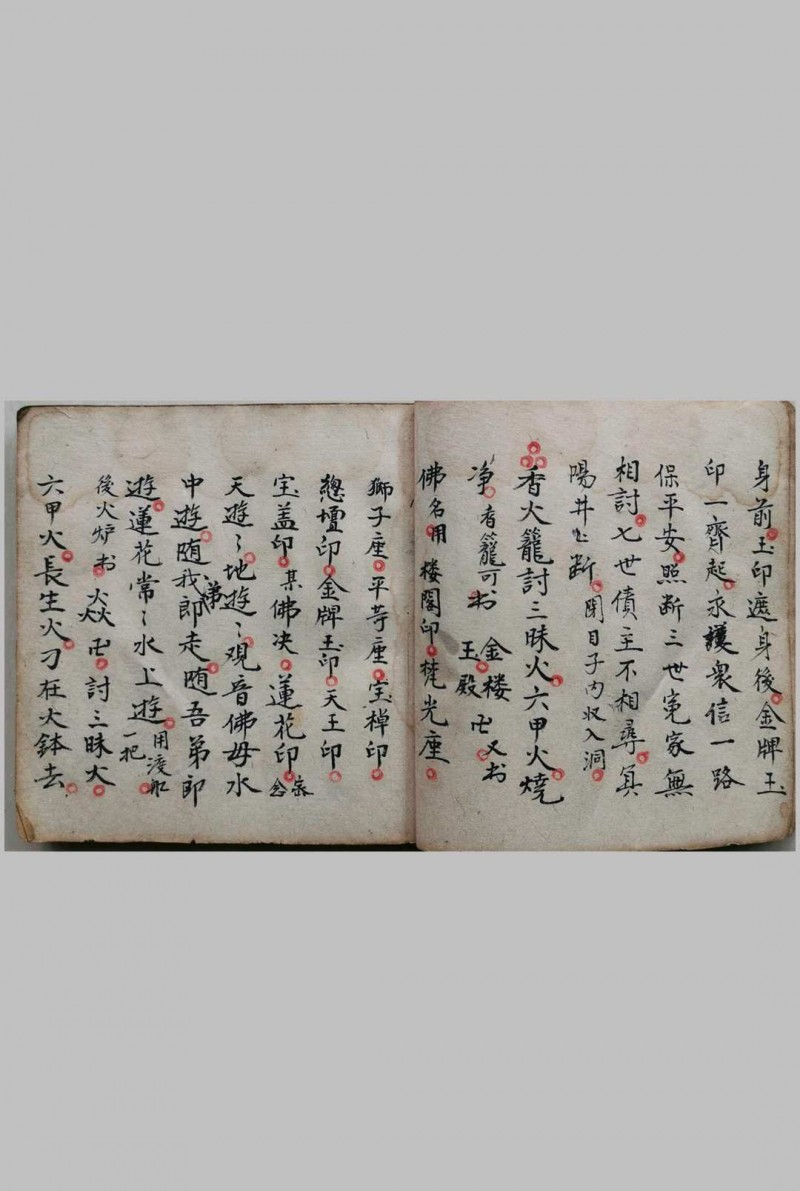 身前玉印遮身後金牌玉
印一齊起永護衆信一路
保平安照断三世冤家無
相討七世債主不相尋冥
陽井〻断閉日子内収入洞
香火籠討三昧火六甲火燒
净者籠可书金楼玉殿卍又书
佛名用楼閣印梵光座
獅子座平等座宝棹印
總壇印金牌玉印天王印
宝盖印某佛决蓮花印
天遊〻地遊〻观音佛母水
中遊随我郎走随吾弟郎
遊蓮花常〻水上遊用渡船一把
後火炉书火焱卍討三昧火
六甲火長生火刀在火鉢去